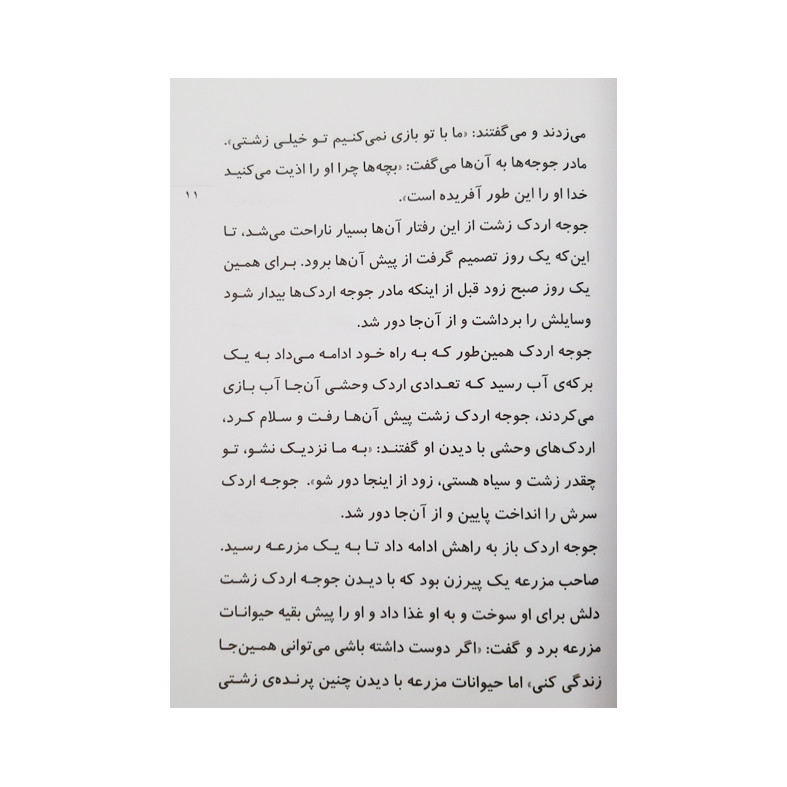 می‌زدند و می‌گفتند: «ما با تو بازی نمی‌کنیم تو خیلی زشتی».
مادر جوجه‌ها به آن‌ها می‌گفت: «بچه‌ها چرا او را اذیت می‌کنید
خدا او را این طور آفریده است».
۱۱
جوجه اردک زشت از این رفتار آن‌ها بسیار ناراحت می‌شد، تا
این‌که یک روز تصمیم گرفت از پیش آن‌ها برود. برای همین
یک روز صبح زود قبل از اینکه مادر جوجه اردک‌ها بیدار شود
وسایلش را برداشت و از آن‌جا دور شد.
جوجه اردک همین‌طور که به راه خود ادامه می‌داد به یک
برکه‌ی آب رسید که تعدادی اردک وحشی آن‌جا آب بازی
می‌کردند، جوجه اردک زشت پیش آن‌ها رفت و سلام کرد،
اردک‌های وحشی با دیدن او گفتند: «به ما نزدیک نشو، تو
چقدر زشت و سیاه هستی، زود از اینجا دور شو». جوجه اردک
سرش را انداخت پایین و از آن‌جا دور شد.
جوجه اردک باز به راهش ادامه داد تا به یک مزرعه رسید.
صاحب مزرعه یک پیرزن بود که با دیدن جوجه اردک زشت
دلش برای او سوخت و به او غذا داد و او را پیش بقیه حیوانات
مزرعه برد و گفت: «اگر دوست داشته باشی می‌توانی همین‌جا
زندگی کنی» اما حیوانات مزرعه با دیدن چنین پرنده‌ی زشتی